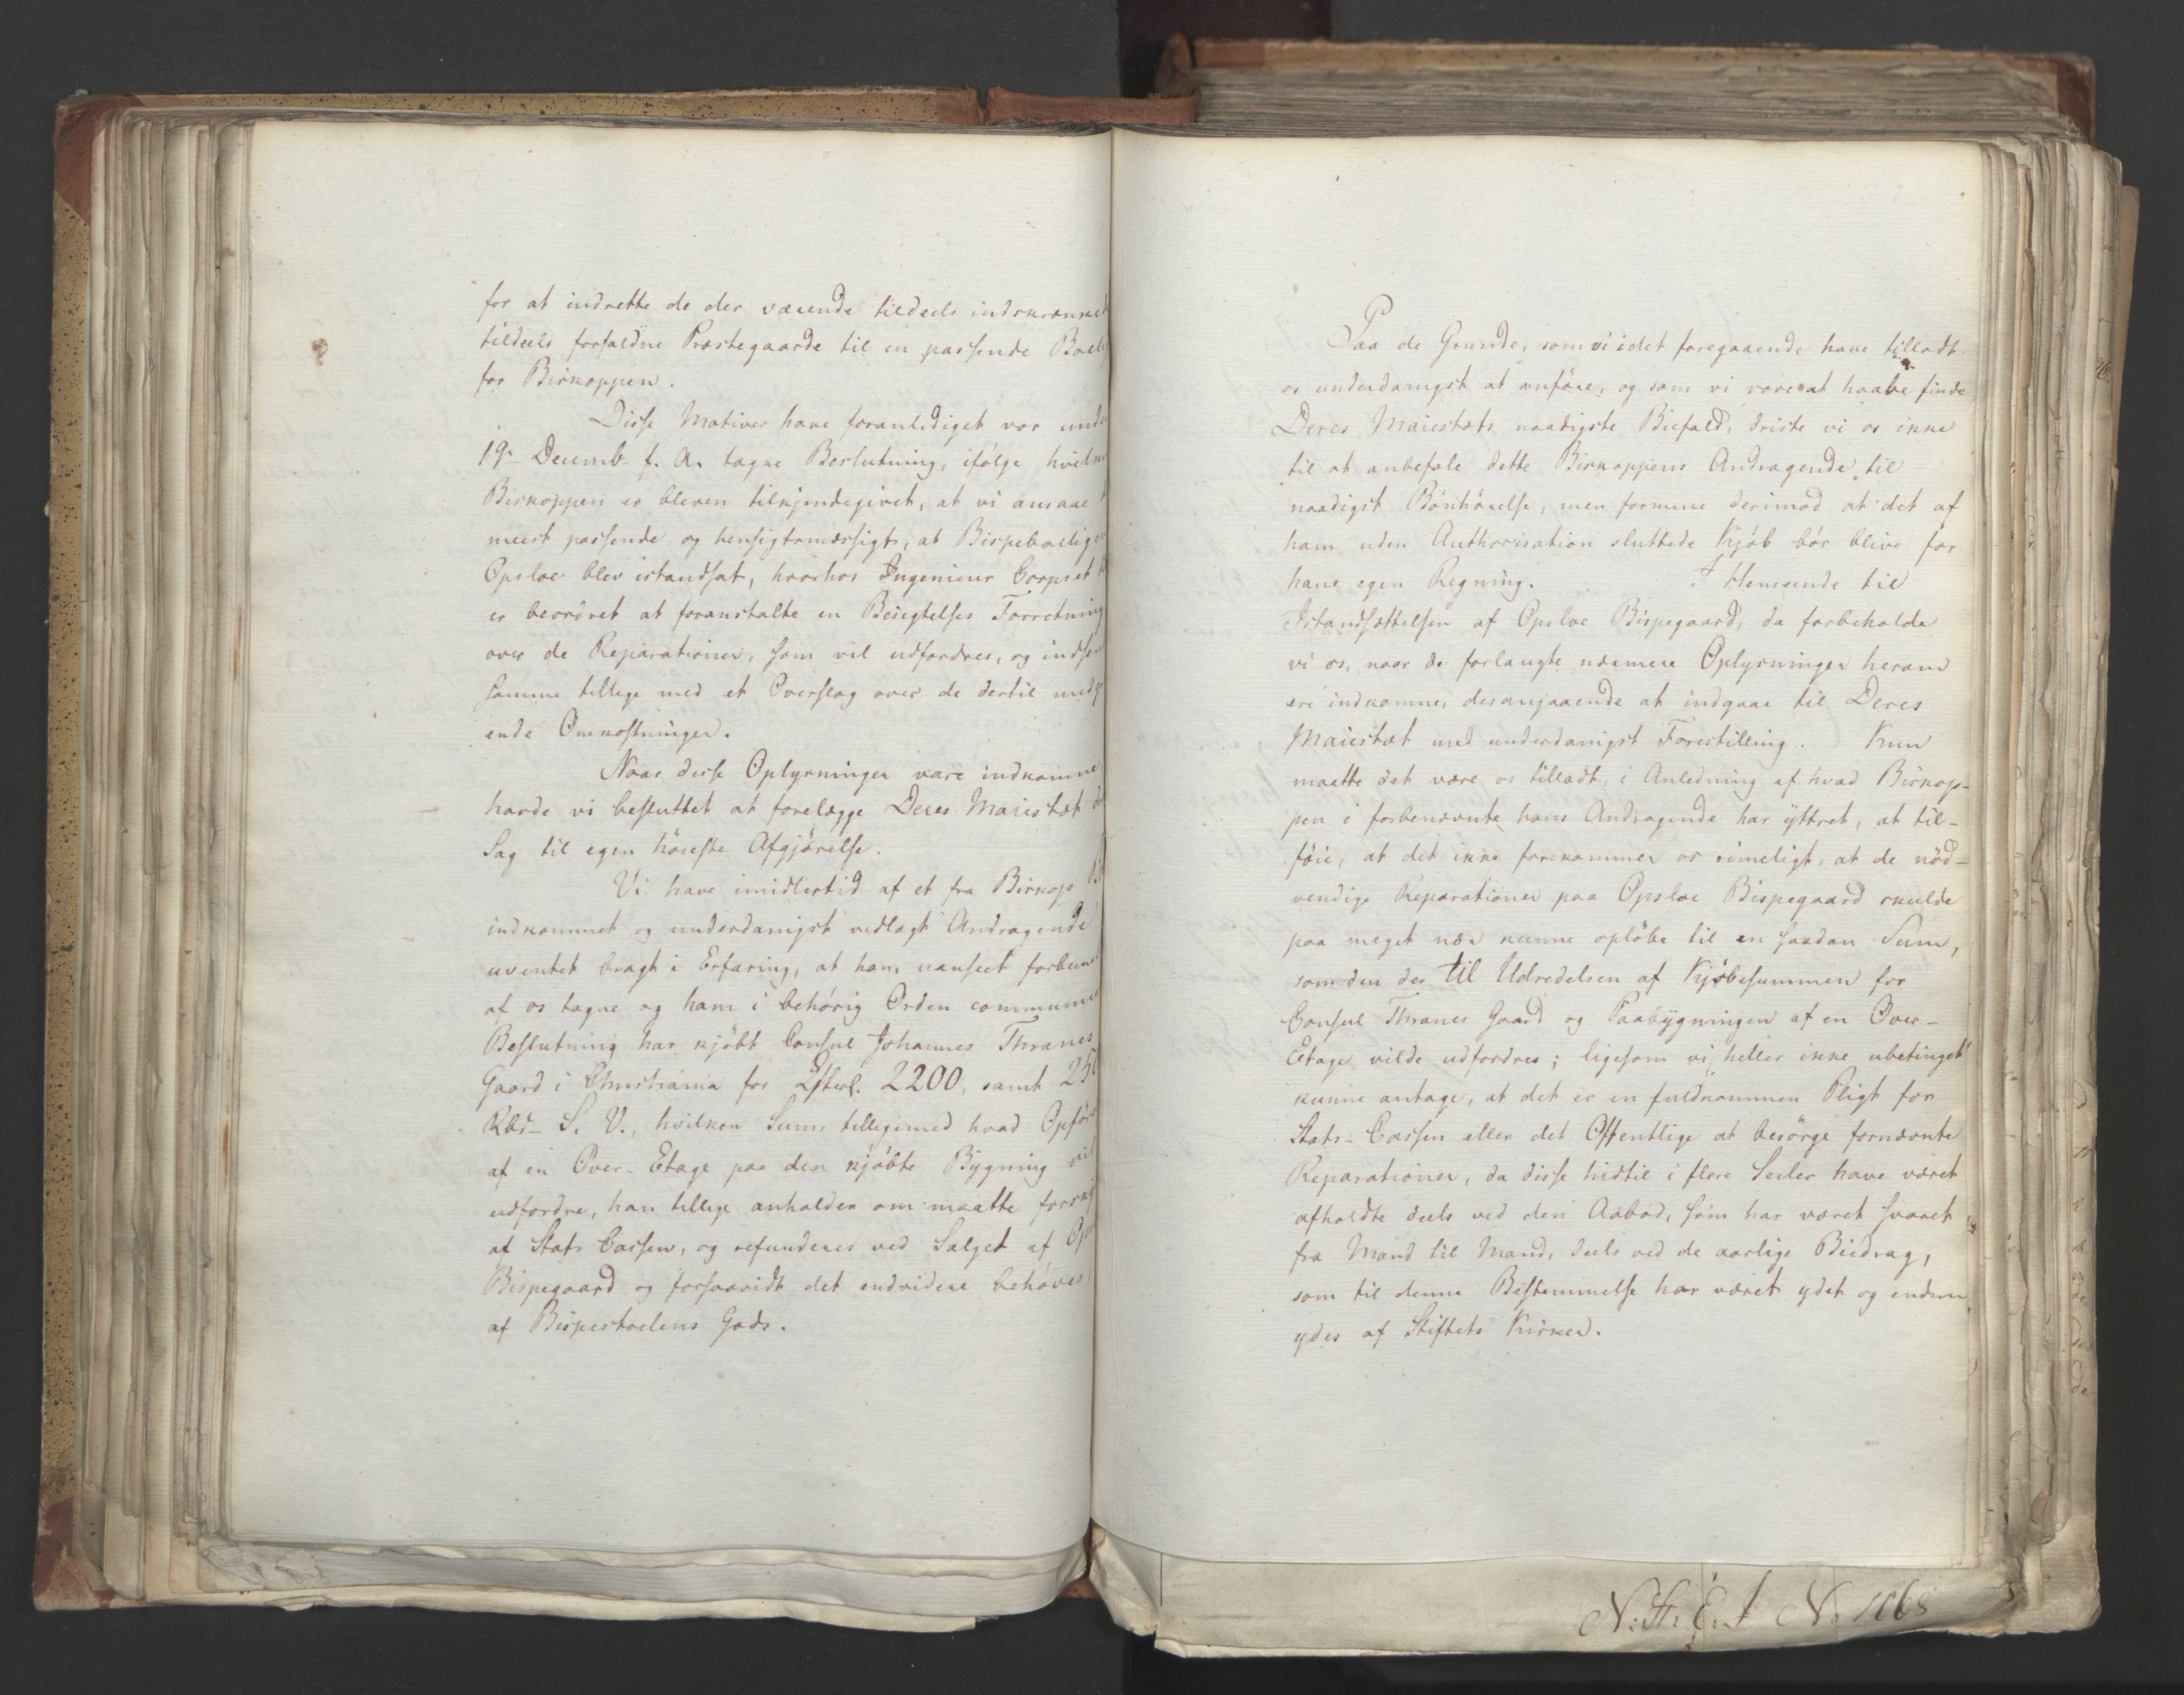 for at indrette de der værende tildeels indskrænked
tildeels forfaldne Præstegaarde til en passende Boelig
for Biskoppen.
Disse Motiver have foranlediget vor under
19de Decemb. f. A. tagne Beslutning, ifølge hvilken
Biskoppen er bleven tilkjendegivet, at vi ansaae
meest passende og hensigtsmæssigt, at Bispeboelige
Opsloe blev istandsat, hvorhos Ingenieur Corpset
er beordret at foranstalte en Besigtelses Forretning
over de Reparationer, som vil udfordres, og indsen
samme tillige med et Overslag over de dertil medg
ende Omkostninger.
Naar disse Oplysninger vare indkomne
havde vi besluttet at forelægge Deres Majestæt
Sag til egen høieste Afgjørelse.
Vi have imidlertid af et fra Biskop
indkommet og underdanigst vedlagt Andragende
uventet bragt i Erfaring, at han, uanseet forben
af os tagne og ham i behørig Orden communic
Beslutning har kjøbt Consul Johannes Thranes
Gaard i Christiania for £Sterl. 2200, samt 250
Rbd. S. V., hvilken Sum, tilligemed hvad Opfør
af en Over-Etage paa den kjøbte Bygning vil
udfordre, han tillige anholder om maatte forsky
af Stats Cassen, og refunderes ved Salget af Op
Bispegaard og forsaavidt det endvidere behøves
af Bispestoelens Gods.
Paa de Grunde, som vi i det foregaaende have tilladt
os underdanigst at anføre, og som vi vove at haabe finde
Deres Majestæts naadigste Biefald, driste vi os ikke
til at anbefale dette Biskoppens Andragende til
naadigst Bønhørelse, men formene derimod at det af
ham uden Authorisation sluttede Kjøb bør blive for
hans egen Regning. I Henseende til
Istandsættelsen af Opsloe Bispegaard, da forbeholde
vi os, naar de forlangte nærmere Oplysninger herom
ere indkomne, desangaaende at indgaae til Deres
Majestæt med underdanigst Forestilling. Kun
maatte det være os tilladt, i Anledning af hvad Biskop-
pen i forbenævnte hans Andragende har yttret, at til-
føie, at det ikke forekommer os rimeligt, at de nød-
vendige Reparationer paa Opsloe Bispegaard skulde
paa meget nær kunne opløbe til en saadan Sum,
som den der til Udredelsen af Kjøbesummen for
Consul Thranes Gaard og Paabygningen af en Over-
Etage vilde udfordres; ligesom vi heller ikke ubetinget
kunne antage, at det er en fuldkommen Pligt for
Stats-Cassen eller det Offentlige at besørge fornævnte
Reparationer, da disse hidtil i flere Secler have været
afholdte deels ved den Aabod, som har været svaret
fra Mand til Mand, deels ved de aarlige Biedrag,
som til denne Bestemmelse har været ydet og endnu
ydes af Stiftets Kirker.
No 1068